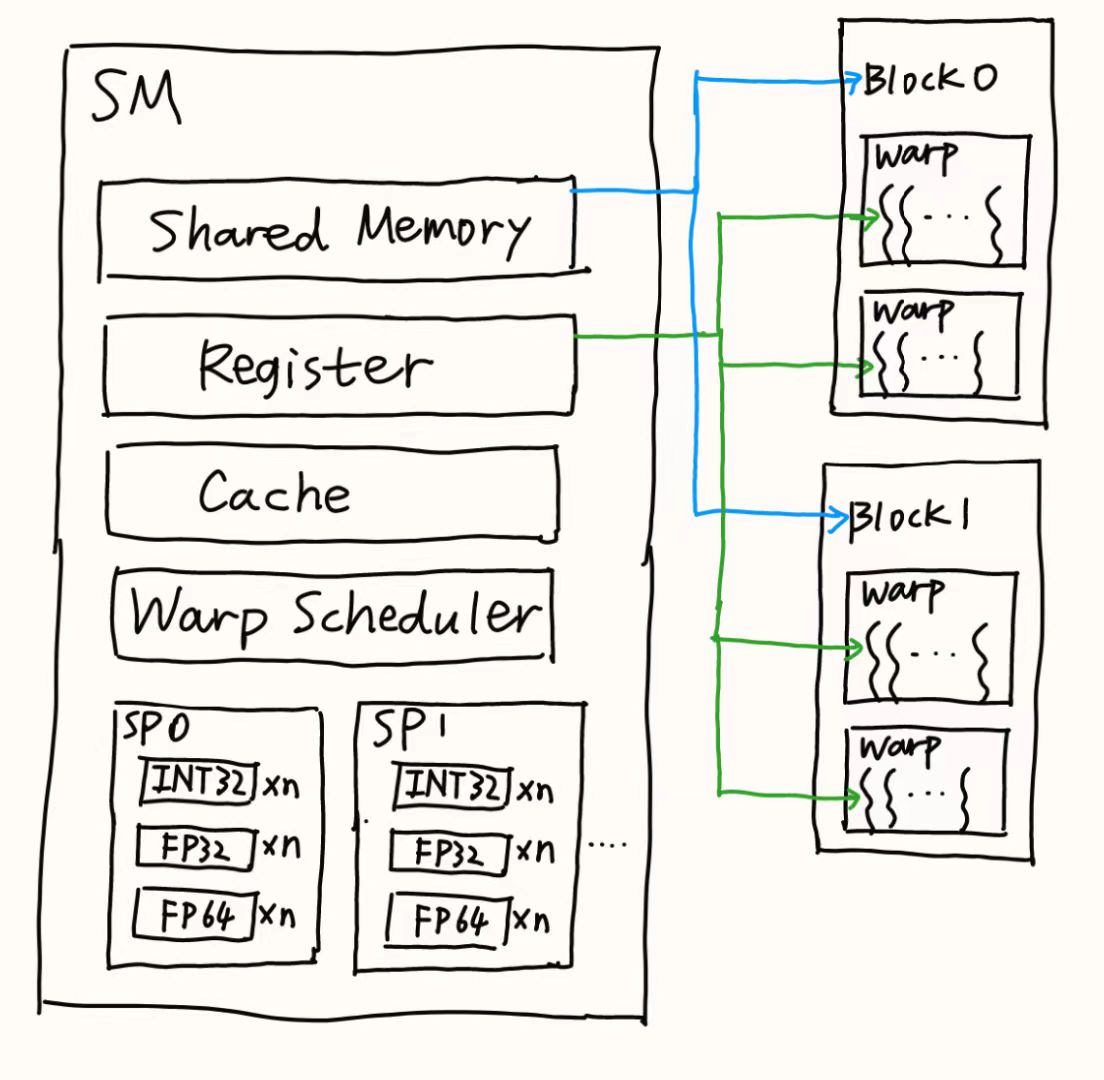 SM
Shared Memory
Register
Cache
Warp Scheduler
SP0
INT32 xn
FP32 xn
FP64 xn
SP1
INT32 xn
FP32 xn
FP64 xn
....
Block 0
warp
...
warp
...
Block 1
warp
...
warp
...